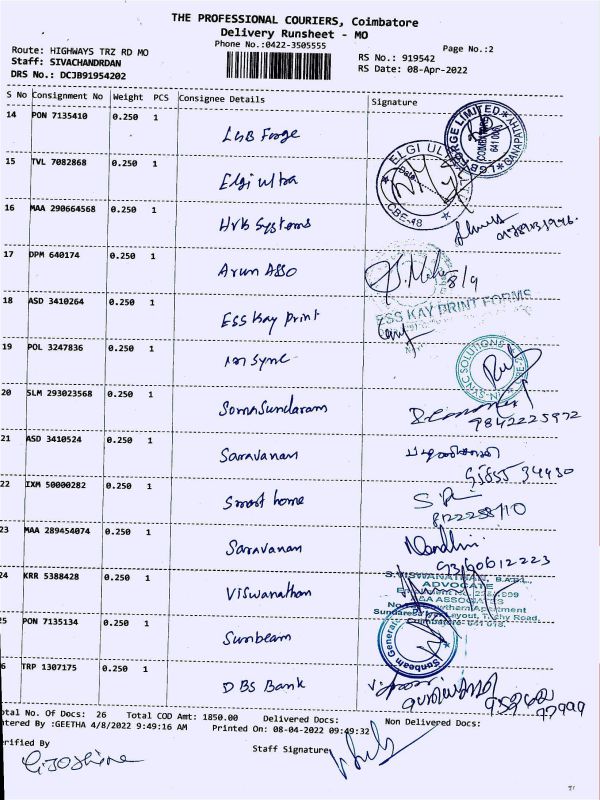 THE PROFESSIONAL COURIERS, Coimbatore
Delivery Runsheet - MO
Phone No.:0422-3505555
Page No.:2
Route: HIGHWAYS TRZ RD MO
Staff: SIVACHANDRDAN
DRS No.: DCJB91954202
RS No.: 919542
RS Date: 08-Apr-2022
S No Consignment No Weight PCS Consignee Details Signature
14 PON 7135410 0.250 1 LGB Forge
15 TVL 7082868 0.250 1 Elgi ultra
16 MAA 290664568 0.250 1 Hvb Systems
17 DPM 640174 0.250 1 Arun Asso
8/9
18 ASD 3410264 0.250 1 ESS Kay print
ESS KAY PRINT FORMS
19 POL 3247836 0.250 1 In Sync
20 SLM 293023568 0.250 1 SomaSundaram
9842225972
21 ASD 3410524 0.250 1 Saravanan
22 IXM 50000282 0.250 1 Smart home
23 MAA 289454074 0.250 1 Saravanan
Nandhini
24 KRR 5388428 0.250 1 Viswanathan
S.VISWANATHAN, B.A.B.L.,
ADVOCATE
25 PON 7135134 0.250 1 Sunbeam
Sunbeam Generat
26 TRP 1307175 0.250 1 DBS Bank
Total No. Of Docs: 26 Total COD Amt: 1850.00 Delivered Docs: Non Delivered Docs:
Entered By :GEETHA 4/8/2022 9:49:16 AM Printed On: 08-04-2022 09:49:32
Verified By
Staff Signature